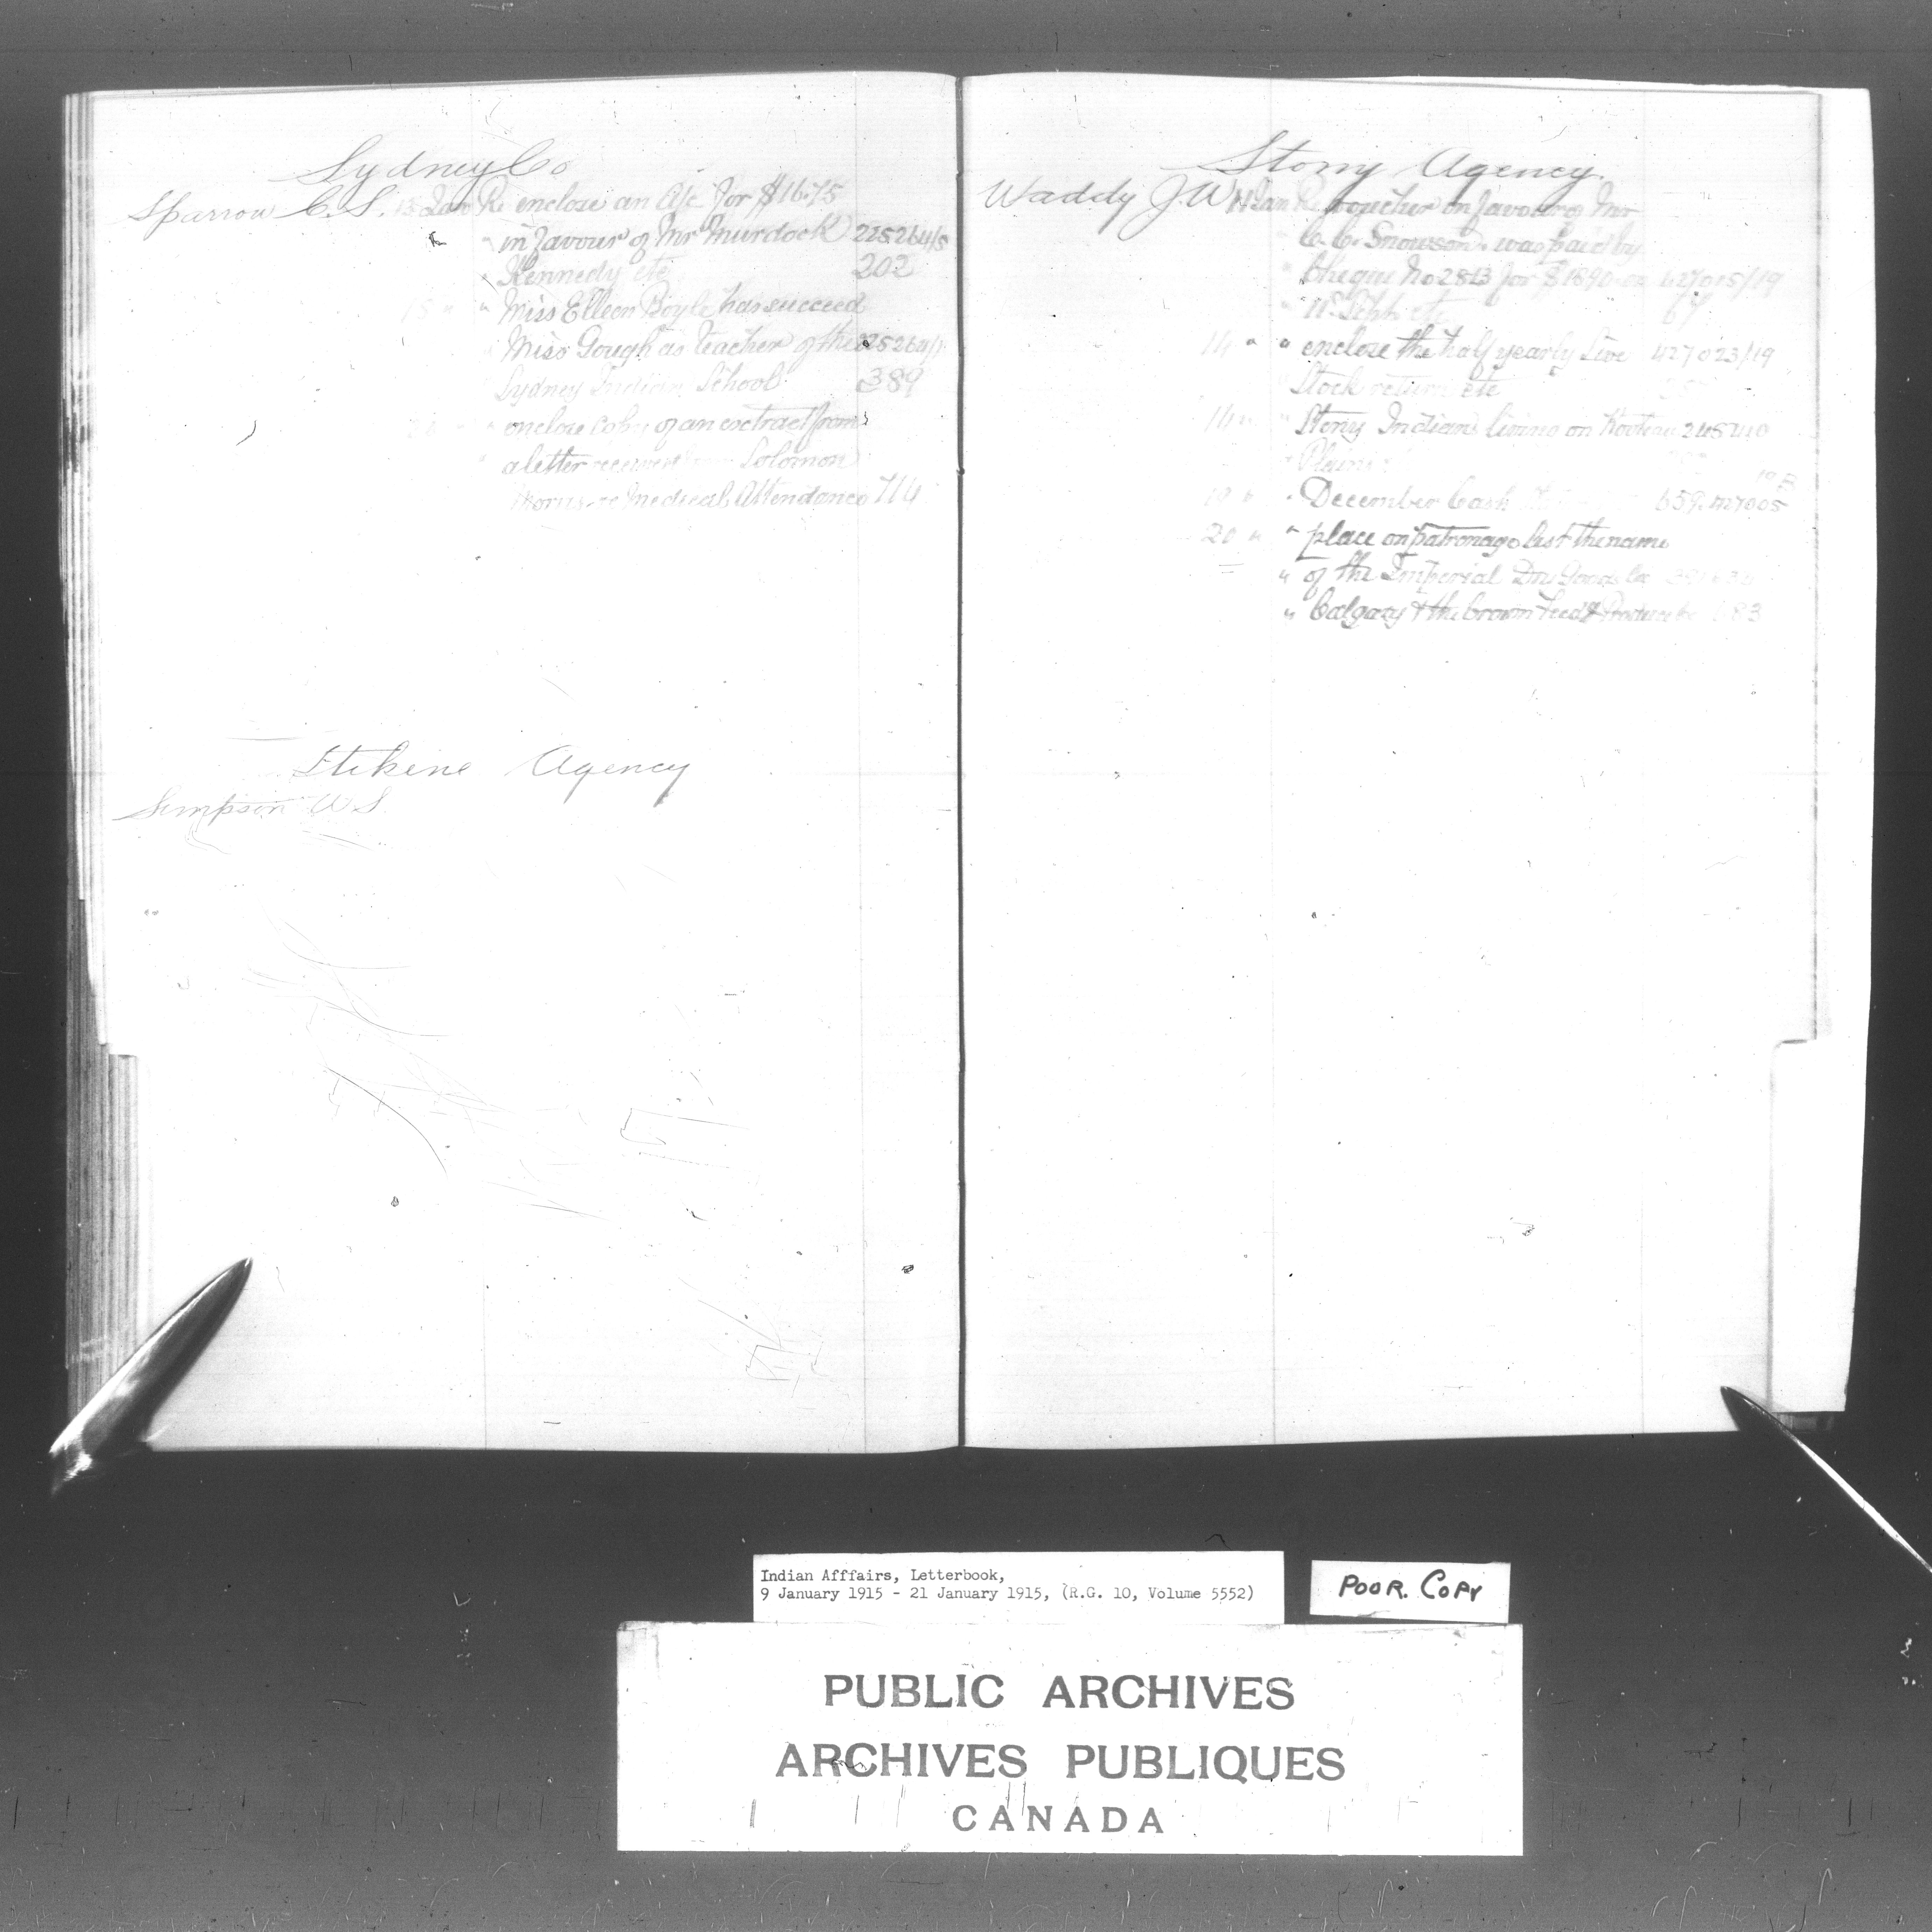 Sydney Co
Sparrow C.S. 13 Jan Re enclose an A/c for $16.75
" in favour of Mr Murdock 225264/5
" Kennedy etc 202
15 " " Miss Elleen Boyle has succeed
" Miss Gough as teacher of the 225264/
Sydney Indian School 389
" enclose copy of an extract from
" a letter received Solomon
Morris re Medical Attendance 714
Stikine Agency
Simpson W S
Stony Agency.
Waddy J.W. Jan Re voucher in favour of Mr
" C.C. Snowson was paid by
" Cheque No 2813 for $1890.00 427015/19
" etc 67
14 " " enclose the half yearly Live 427023/19
Stock return etc
14 " " Stony Indians living on Kootenai 245240
" Plains
19 " " December Cash 659. 427005 19 B
20 " " place on patronage list the name
" of the Imperial Dry Goods Co
" Calgary & the Crown Feed & Produce Co 683
Indian Afffairs, Letterbook,
9 January 1915 - 21 January 1915, (R.G. 10, Volume 5552)
POOR. COPY
PUBLIC ARCHIVES
ARCHIVES PUBLIQUES
CANADA